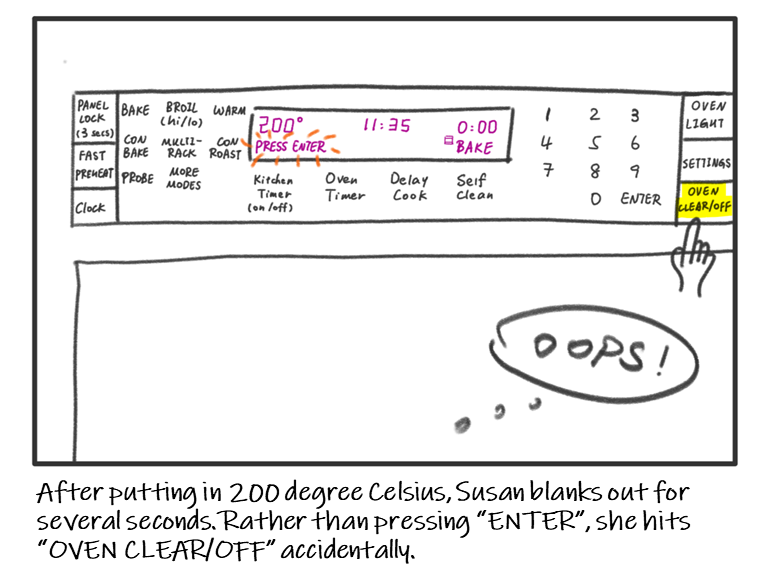 PANEL LOCK (3 secs)
FAST PREHEAT
Clock
BAKE
BROIL (hi/lo)
WARM
CON BAKE
MULTI-RACK
CON ROAST
PROBE
MORE MODES
200°
11:35
0:00
PRESS ENTER
BAKE
Kitchen Timer (on/off)
Oven Timer
Delay Cook
Self Clean
1 2 3
4 5 6
7 8 9
0 ENTER
OVEN LIGHT
SETTINGS
OVEN CLEAR/OFF
OOPS!
After putting in 200 degree Celsius, Susan blanks out for
several seconds. Rather than pressing “ENTER”, she hits
“OVEN CLEAR/OFF” accidentally.